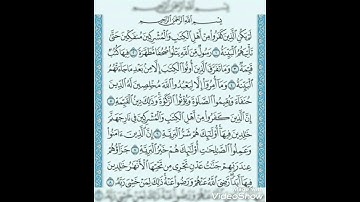 بِسْمِ ٱللَّهِ ٱلرَّحْمَٰنِ ٱلرَّحِيمِ
بِسْمِ ٱللَّهِ ٱلرَّحْمَٰنِ ٱلرَّحِيمِ
لَمْ يَكُنِ ٱلَّذِينَ كَفَرُوا۟ مِنْ أَهْلِ ٱلْكِتَٰبِ وَٱلْمُشْرِكِينَ مُنفَكِّينَ حَتَّىٰ
تَأْتِيَهُمُ ٱلْبَيِّنَةُ ١ رَسُولٌ مِّنَ ٱللَّهِ يَتْلُوا۟ صُحُفًا مُّطَهَّرَةً ٢ فِيهَا كُتُبٌ
قَيِّمَةٌ ٣ وَمَا تَفَرَّقَ ٱلَّذِينَ أُوتُوا۟ ٱلْكِتَٰبَ إِلَّا مِنۢ بَعْدِ مَا جَآءَتْهُمُ
ٱلْبَيِّنَةُ ٤ وَمَآ أُمِرُوٓا۟ إِلَّا لِيَعْبُدُوا۟ ٱللَّهَ مُخْلِصِينَ لَهُ ٱلدِّينَ
حُنَفَآءَ وَيُقِيمُوا۟ ٱلصَّلَوٰةَ وَيُؤْتُوا۟ ٱلزَّكَوٰةَ وَذَٰلِكَ دِينُ ٱلْقَيِّمَةِ ٥
إِنَّ ٱلَّذِينَ كَفَرُوا۟ مِنْ أَهْلِ ٱلْكِتَٰبِ وَٱلْمُشْرِكِينَ فِى نَارِ جَهَنَّمَ
خَٰلِدِينَ فِيهَآ أُو۟لَٰٓئِكَ هُمْ شَرُّ ٱلْبَرِيَّةِ ٦ إِنَّ ٱلَّذِينَ ءَامَنُوا۟
وَعَمِلُوا۟ ٱلصَّٰلِحَٰتِ أُو۟لَٰٓئِكَ هُمْ خَيْرُ ٱلْبَرِيَّةِ ٧ جَزَآؤُهُمْ
عِندَ رَبِّهِمْ جَنَّٰتُ عَدْنٍ تَجْرِى مِن تَحْتِهَا ٱلْأَنْهَٰرُ خَٰلِدِينَ
فِيهَآ أَبَدًا رَّضِىَ ٱللَّهُ عَنْهُمْ وَرَضُوا۟ عَنْهُ ذَٰلِكَ لِمَنْ خَشِىَ رَبَّهُۥ ٨
VideoShow